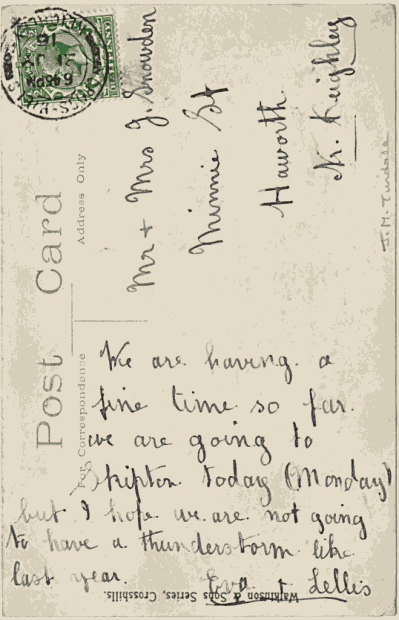 Post Card
For Correspondence
Address Only
Mr + Mrs J Snowden
Minnie St
Haworth
Nr. Keighley
We are having a
fine time so far.
we are going to
Skipton today (Monday)
but I hope we are not going
to have a thunderstorm like
last year.
Eva + Lellis
Watkinson & Sons Series, Crosshills.